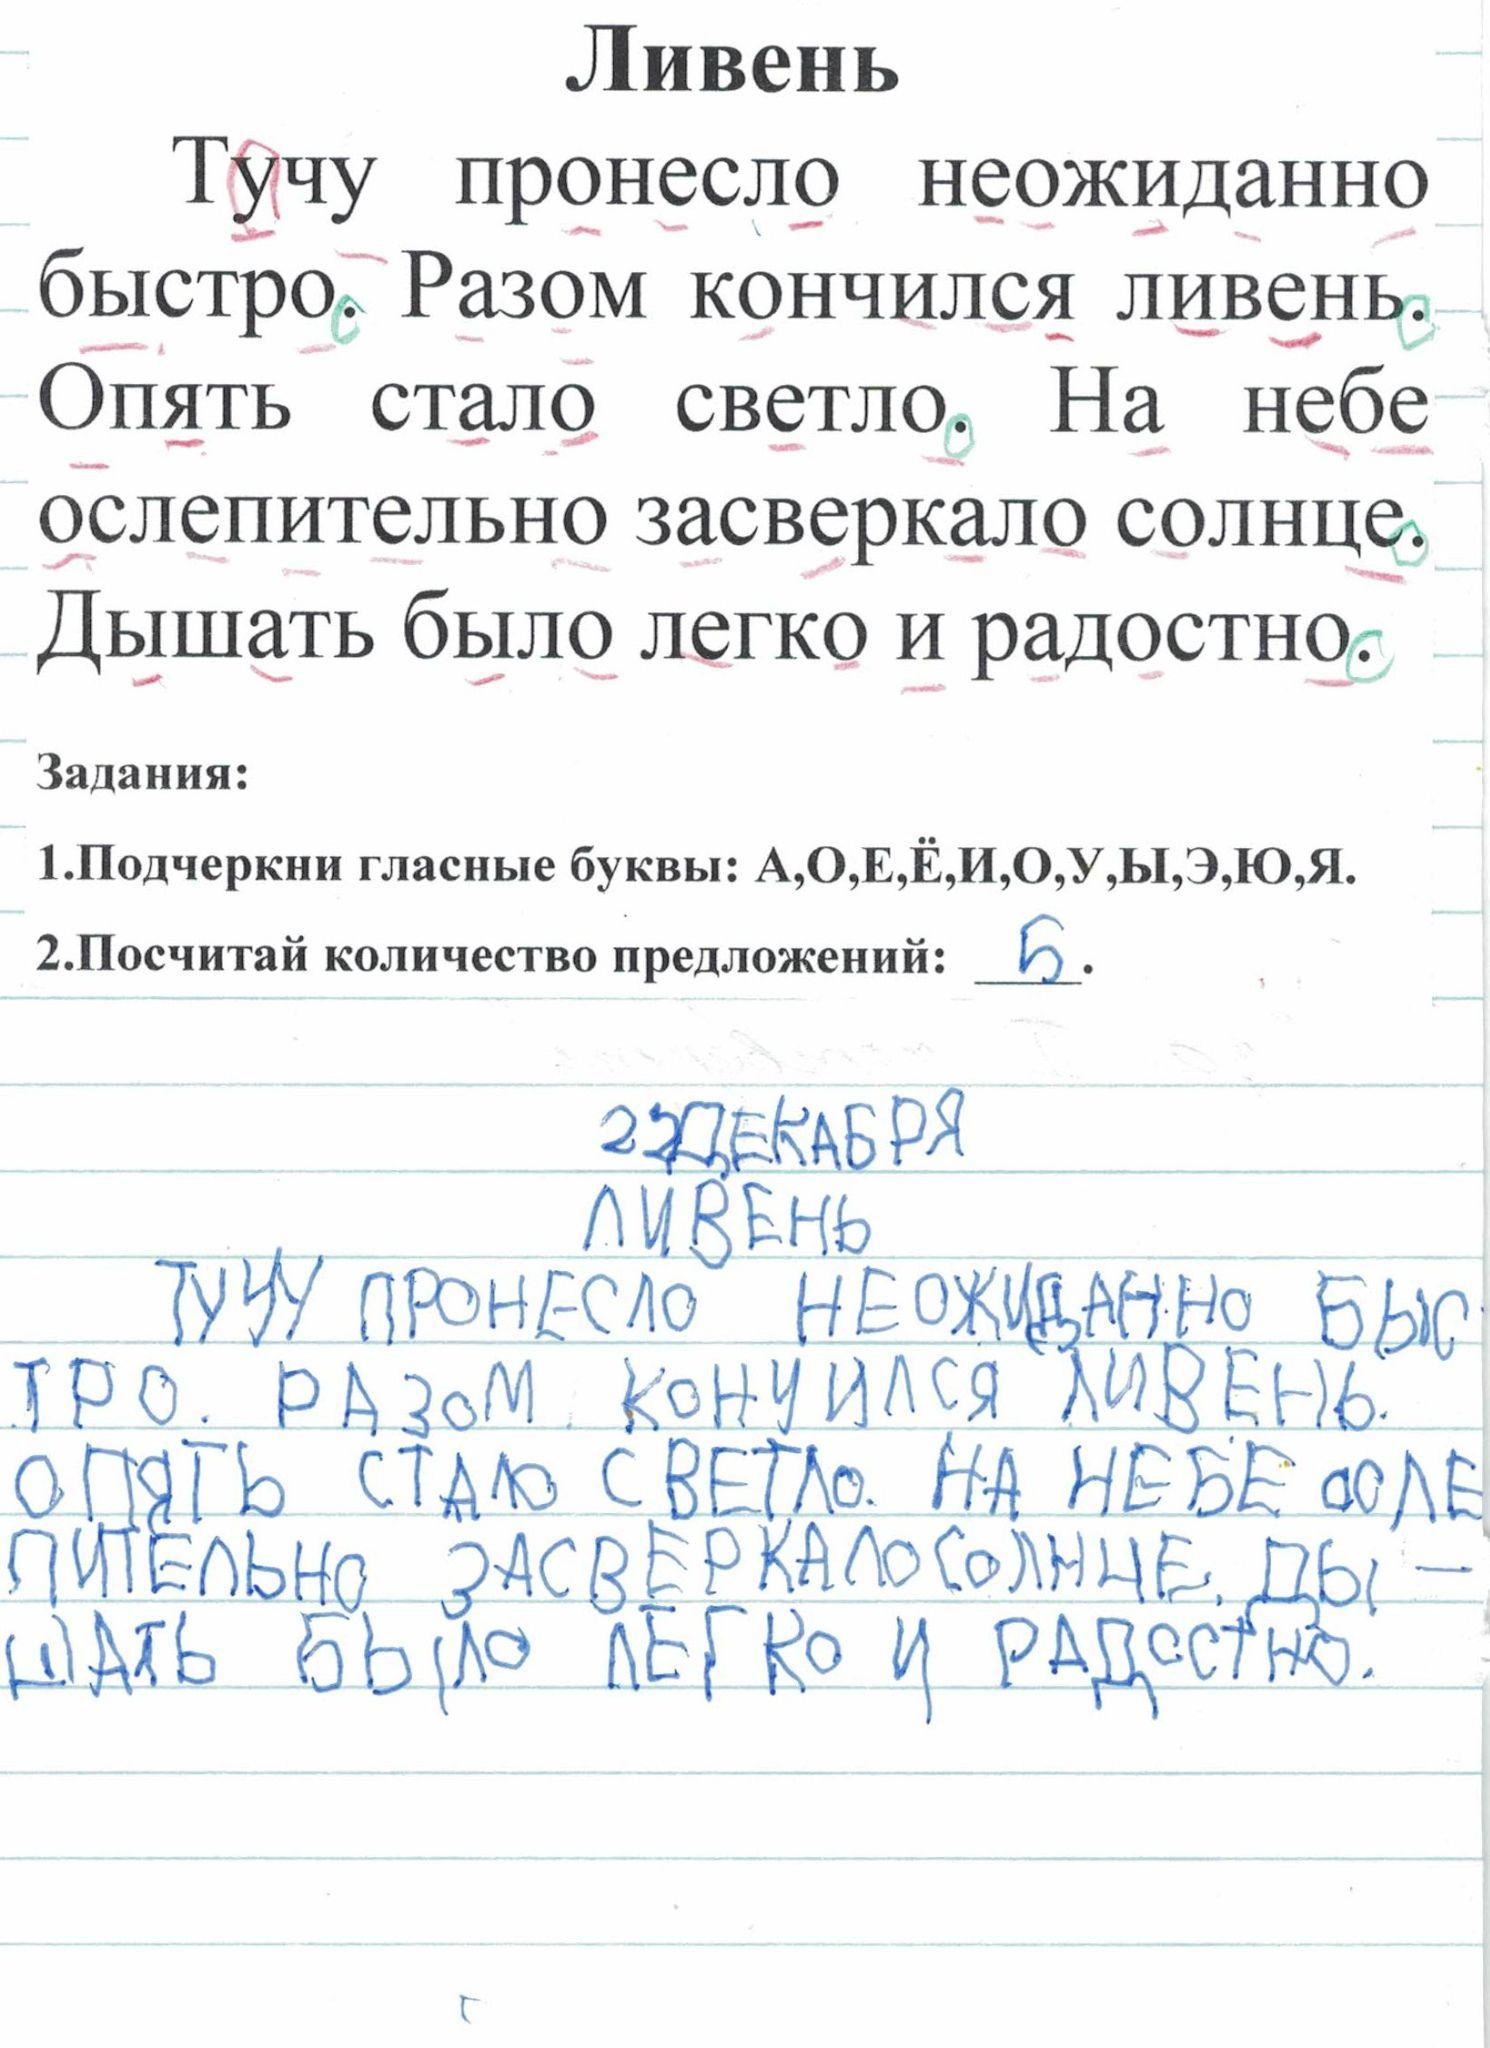 Ливень
Тучу пронесло неожиданно
быстро. Разом кончился ливень.
Опять стало светло. На небе
ослепительно засверкало солнце.
Дышать было легко и радостно.
Задания:
1.Подчеркни гласные буквы: А,О,Е,Ё,И,О,У,Ы,Э,Ю,Я.
2.Посчитай количество предложений: 5.
22 ДЕКАБРЯ
ЛИВЕНЬ
ТУЧУ ПРОНЕСЛО НЕОЖИДАННО БЫС-
ТРО. РАЗОМ КОНЧИЛСЯ ЛИВЕНЬ.
ОПЯТЬ СТАЛО СВЕТЛО. НА НЕБЕ ОСЛЕ
ПИТЕЛЬНО ЗАСВЕРКАЛО СОЛНЦЕ. ДЫ-
ШАТЬ БЫЛО ЛЕГКО И РАДОСТНО.